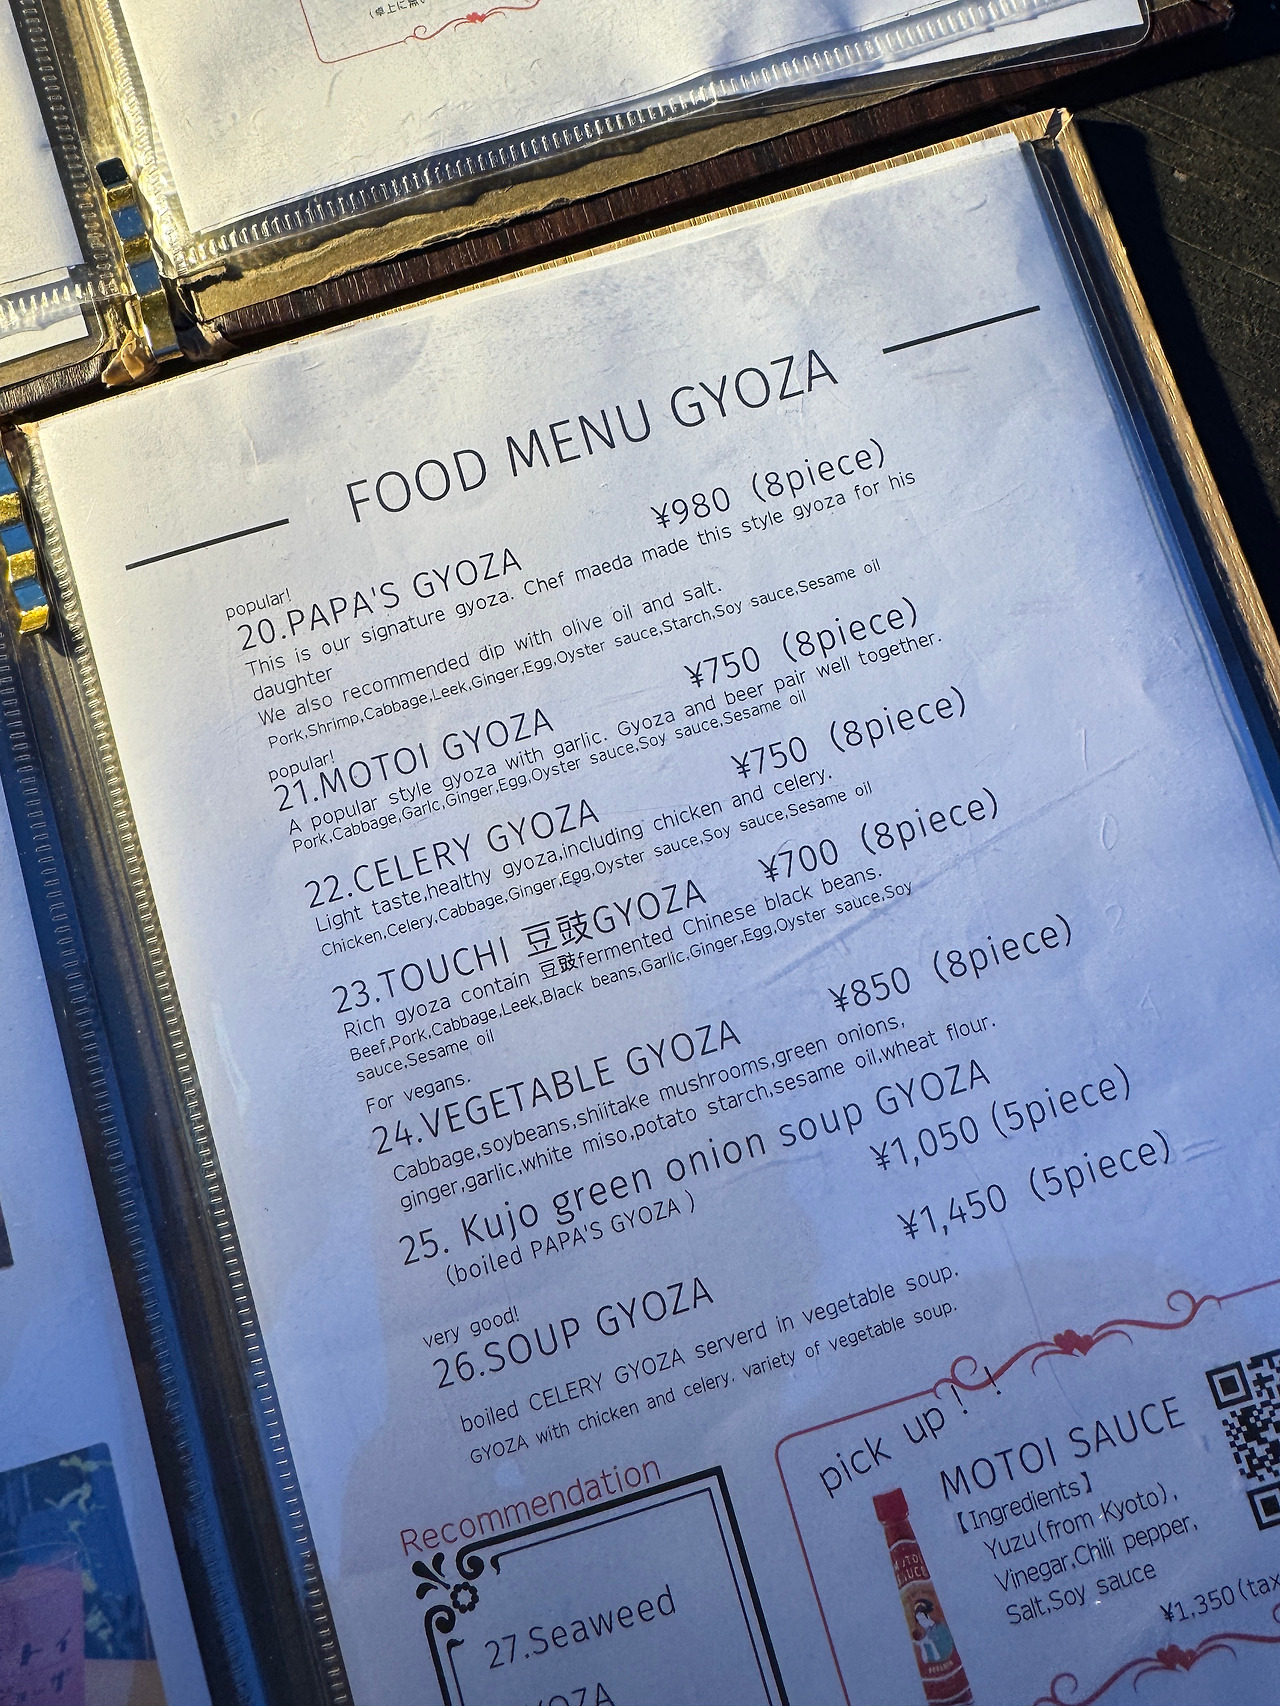 (卓上に無い
FOOD MENU GYOZA
popular!
20.PAPA'S GYOZA ¥980 (8piece)
This is our signature gyoza. Chef maeda made this style gyoza for his
daughter
We also recommended dip with olive oil and salt.
Pork,Shrimp,Cabbage,Leek,Ginger,Egg,Oyster sauce,Starch,Soy sauce,Sesame oil
popular!
21.MOTOI GYOZA ¥750 (8piece)
A popular style gyoza with garlic. Gyoza and beer pair well together.
Pork,Cabbage,Garlc,Ginger,Egg,Oyster sauce,Soy sauce,Sesame oil
22.CELERY GYOZA ¥750 (8piece)
Light taste,healthy gyoza,including chicken and celery.
Chicken,Celery,Cabbage,Ginger,Egg,Oyster sauce,Soy sauce,Sesame oil
23.TOUCHI 豆豉GYOZA ¥700 (8piece)
Rich gyoza contain 豆豉fermented Chinese black beans.
Beef,Pork,Cabbage,Leek,Black beans,Garlic,Ginger,Egg,Oyster sauce,Soy
sauce,Sesame oil
For vegans.
24.VEGETABLE GYOZA ¥850 (8piece)
Cabbage,soybeans,shiitake mushrooms,green onions,
ginger,garlic,white miso,potato starch,sesame oil,wheat flour.
25. Kujo green onion soup GYOZA
(boiled PAPA'S GYOZA ) ¥1,050 (5piece)
very good!
26.SOUP GYOZA ¥1,450 (5piece)
boiled CELERY GYOZA serverd in vegetable soup.
GYOZA with chicken and celery. variety of vegetable soup.
Recommendation
27.Seaweed
YOZA
pick up！！
MOTOI SAUCE
【Ingredients】
Yuzu(from Kyoto),
Vinegar,Chili pepper,
Salt,Soy sauce
¥1,350(tax
MOTOI
SAUCE